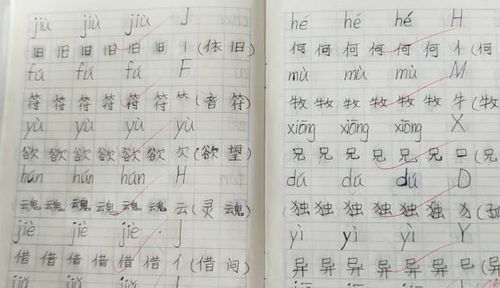 jiù jiù jiù J
旧 旧 旧 旧 旧 旧 丨 (依 旧
fú fú fú F
符 符 符 符 符 符 ⺮ (音 符)
yù yù yù yù
欲 欲 欲 欲 欲 欲 欠 (欲 望
hún hún hún H
魂 魂 魂 魂 魂 魂 云 (灵 魂)
jiè jiè jiè J
借 借 借 借 借 借 亻 (借 阅)
hé hé hé H
何 何 何 何 何 何 亻 (何
mù mù mù M
牧 牧 牧 牧 牧 牧 牛 (牧
xiōng xiōng xiōng X
兄 兄 兄 兄 兄 兄 口 (兄
dú dú dú D
独 独 独 独 独 独 犭 (孤
yì yì yì Y
异 异 异 异 异 异 巳 (异